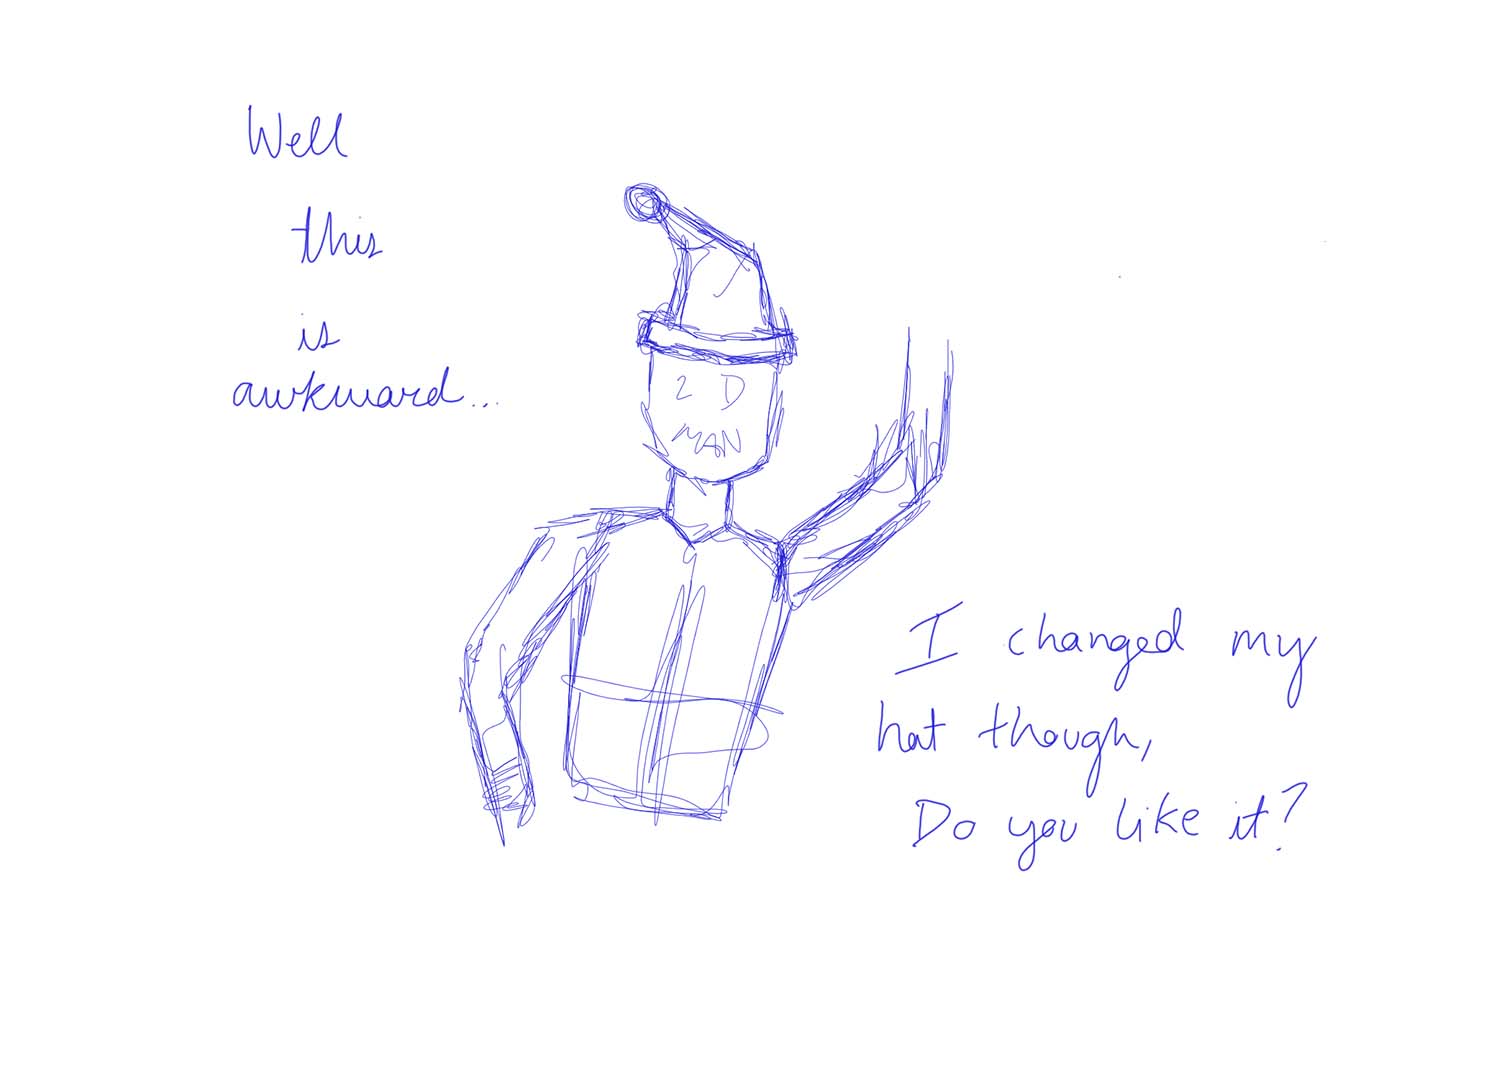 Well
this
is
awkward...
2 D
MAN
I changed my
hat though,
Do you like it?